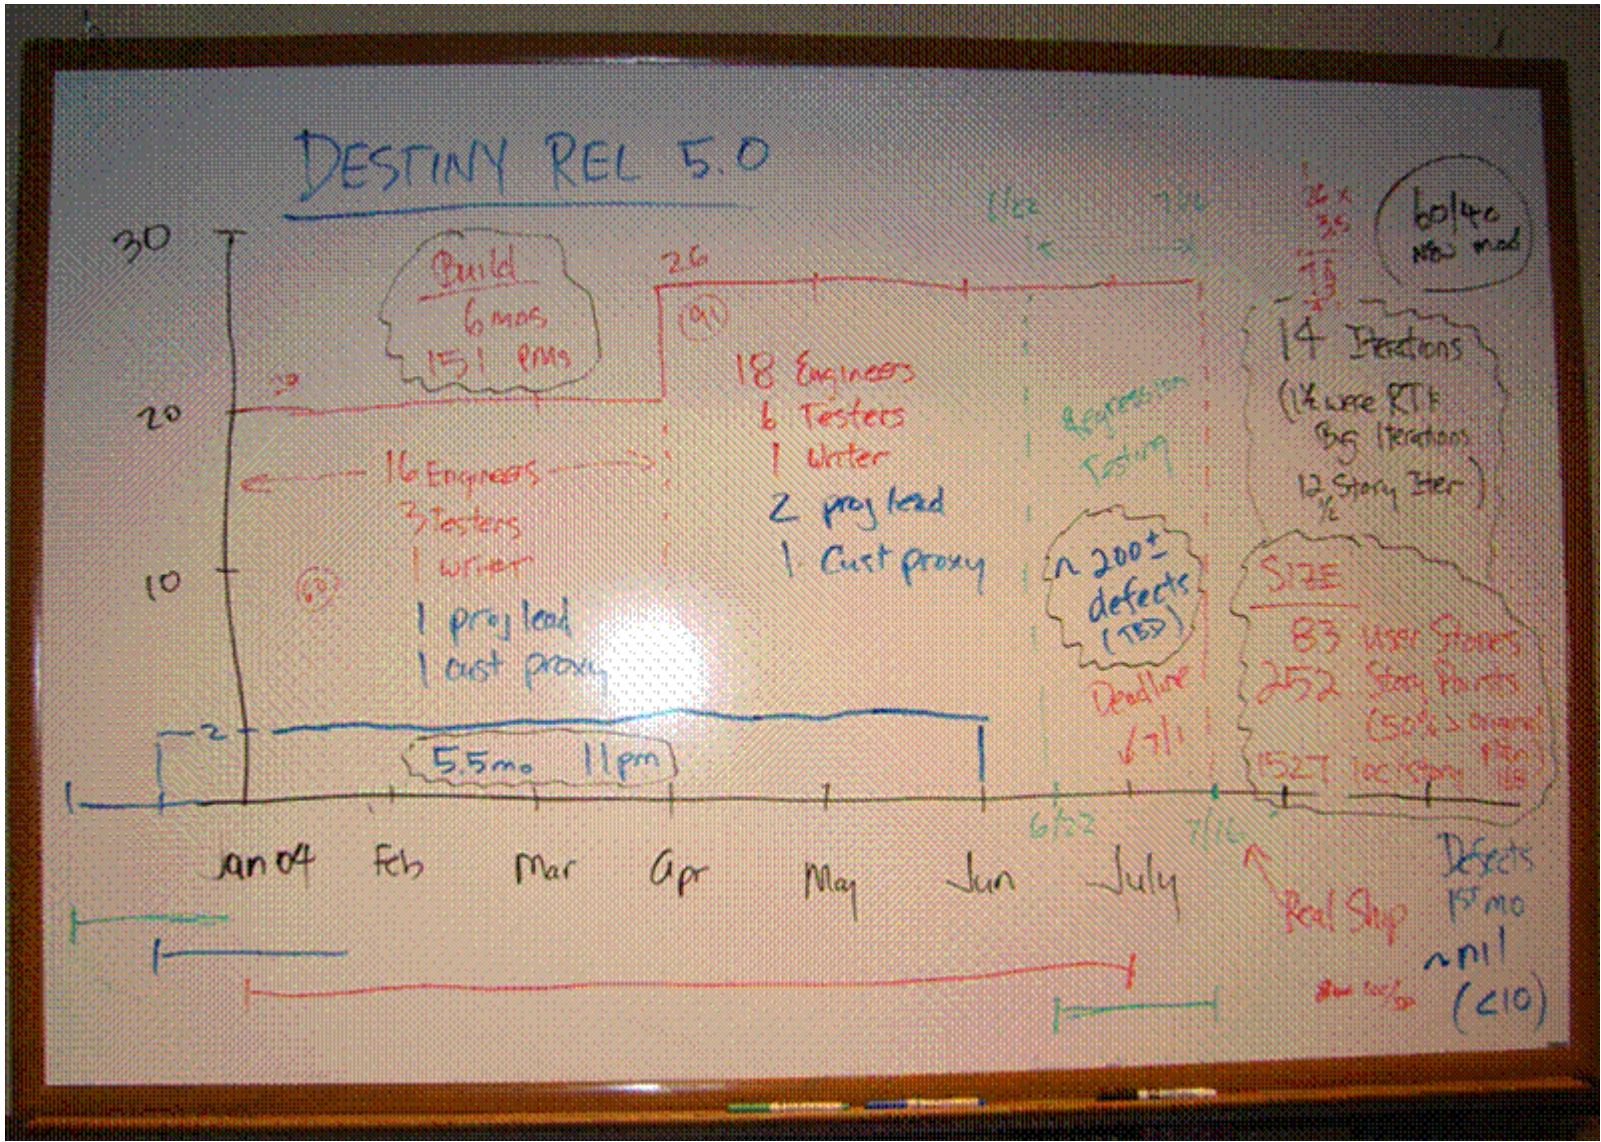 DESTINY REL 5.0
30
20
10
Build
6 mos
151 pms
20
16 Engineers
3 Testers
1 writer
1 proj lead
1 cust proxy
60
26
91
18 Engineers
6 Testers
1 writer
2 proj lead
1 Cust proxy
Regression
Testing
~ 200±
defects
(TBD)
Deadline
7/1
26 x
3.5
60/40
NEW Mod
14 Iterations
(1½ were RTK
Big Iterations
12 ½ Story Iter)
SIZE
83 User Stories
252 Story Points
(50% > original
1527 loc/story
2
5.5mo 11pm
6/22
7/16
Jan 04 Feb Mar Apr May Jun July
Real Ship
Defects
1st mo
~nil
(<10)